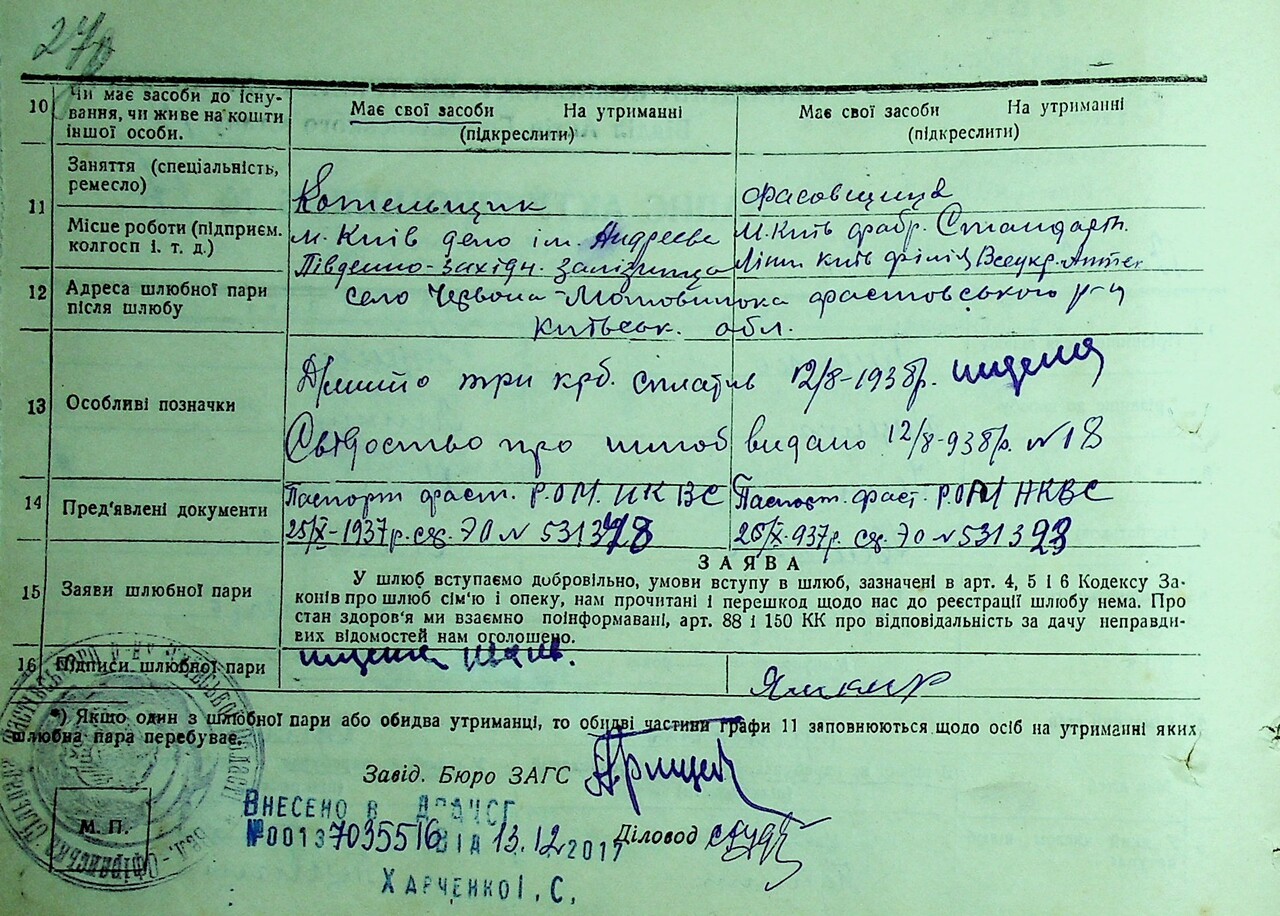 10 Чи має засоби до існу-
вання, чи живе на кошти
іншої особи.
Має свої засоби На утриманні
(підкреслити)
Має свої засоби На утриманні
(підкреслити)
11 Заняття (спеціальність,
ремесло)
Котельщик
фасовщица
Місце роботи (підприєм.
колгосп і. т. д.)
м. Київ депо ім. Андреева
Південно-західн. залізниця
м. Київ фабр. Стандарт.
Київ філія Всеукр.
12 Адреса шлюбної пари
після шлюбу
село Червона-Мотовилока фастовського р-у
Київськ. обл.
13 Особливі позначки
три крб. сплатив 12/8-1938р.
Свідоство про шлюб видано 12/8-938р. N 18
14 Пред'явлені документи
Паспорт фаст. Р.О.М. НКВС
25/X-1937р. N 531378
Паспорт. фаст. Р.О.М НКВС
25/X-937р. N 531393
15 Заяви шлюбної пари
ЗАЯВА
У шлюб вступаємо добровільно, умови вступу в шлюб, зазначені в арт. 4, 5 і 6 Кодексу За-
конів про шлюб сім'ю і опеку, нам прочитані і перешкод щодо нас до реєстрації шлюбу нема. Про
стан здоров'я ми взаємно поінформавані, арт. 88 і 150 КК про відповідальність за дачу неправди-
вих відомостей нам оголошено.
16 Підписи шлюбної пари
*) Якщо один з шлюбної пари або обидва утриманці, то обидві частини графи 11 заповнюються щодо осіб на утриманні яких
шлюбна пара перебуває.
Завід. Бюро ЗАГС
М. П.
Внесено в ДРАЧСГ
№00137035516 від 13.12.2017
Діловод
Харченко І. С.